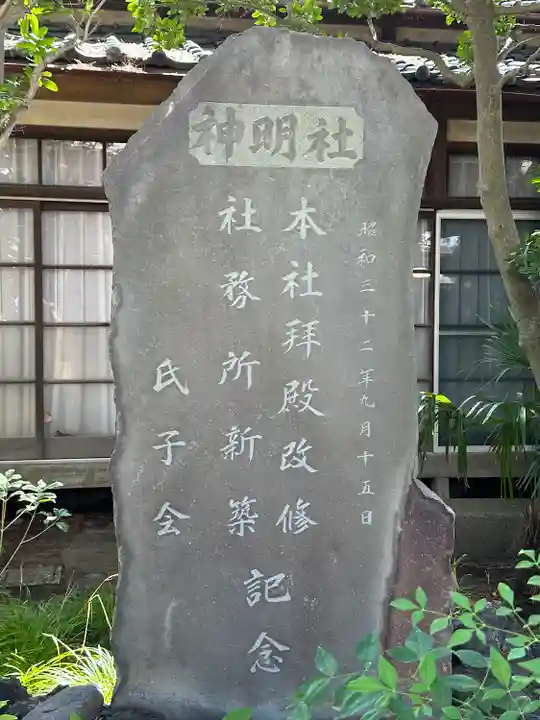 神明社
昭和三十二年九月十五日
本社拝殿改修
社務所新築
記念
氏子会